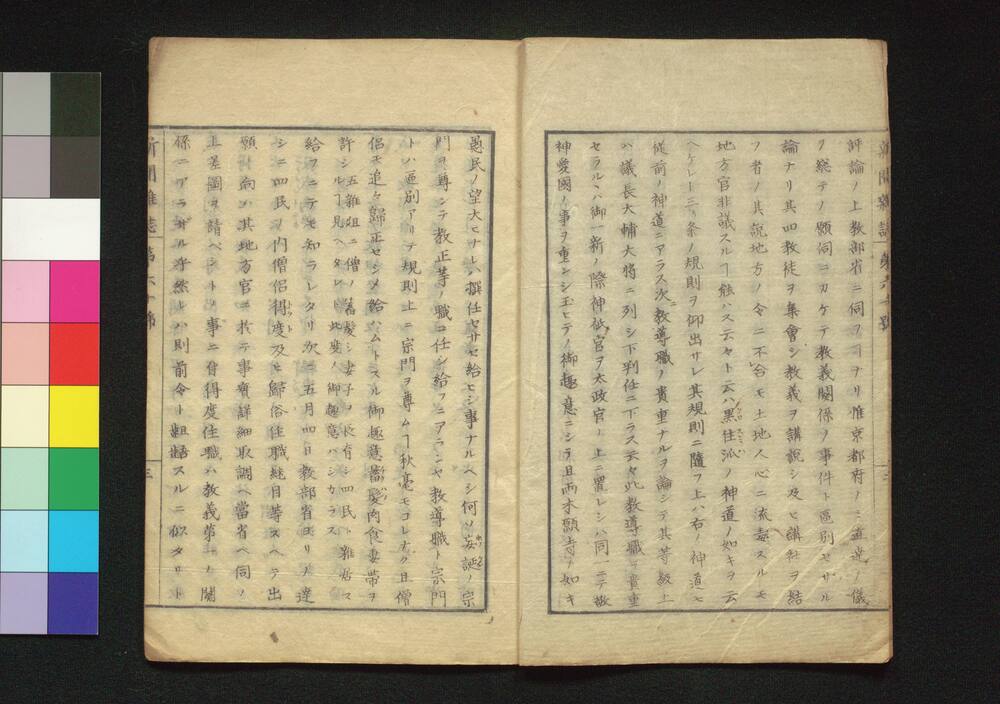 新聞雑誌 第六十號 三
評論ノ上教部省ニ伺フヿナリ惟京都府ノミ直達ノ儀
ヲ総テノ願伺ニカケテ教義關係ノ事件ト區別セザル
論ナリ其四教徒ヲ集會シ教義ヲ講説シ及ヒ講社ヲ結
フ者ノ其説地方ノ令ニ不合モ土地人心ニ流毒スルモ
地方官非議スルヿ能ハス云々ト云ハ黒住派ノ神道ノ如キヲ云
ヘケレ𪜈三ヶ条ノ規則ヲ仰出サレ其規則ニ隨フ上ハ右ノ神道モ
従前ノ神道ニアラス次ニ教導職ノ貴重ナルヲ論シテ其等級上
ハ議長大輔大将ニ列シ下判任ニ下ラス云々此教導職ヲ貴重
セラルヽハ御一新ノ際神祇官ヲ太政官ノ上ニ置レシハ同一ニテ敬
神愛國ノ事ヲ重ンシ玉ヒテノ御趣意ニシテ且両本願寺ノ如キ
愚民ノ望大ヒナレハ撰任セサセ給ヒシ事ナルヘシ何ソ妄誕ノ宗
門ヲ尊ンテ教正等ノ職ニ任シ給フニアランヤ教導職ト宗門
トハ區別アリテ規則上ニ宗門ヲ尊ムヿ秋毫モコレナク且僧
侶モ追々歸正セシメ給ハムトスル御趣意蓄髪肉食妻帯ヲ
許シル 五雜俎ニ僧ノ蓄髪シ妻子ヲ长有シ四民ト雜居ス ヿ見ヘタレド此度ノ御趣意ハシカラス
給フニテモ知ラレタリ次ニ五月四日教部省ヨリノ達
シニ四民ノ内僧侶得度及ヒ歸俗住職継目等スヘテ出
願ノ向ハ其地方官ニ於テ事實詳細取調ヘ當省ヘ伺ノ
上差圖ヲ請ベシトノ事ニ自得度住職ハ教義第一ノ關
係ニアラザル乎然レハ則前令ト齟齬スルニ似タリト
新聞雑誌 第六十號 三